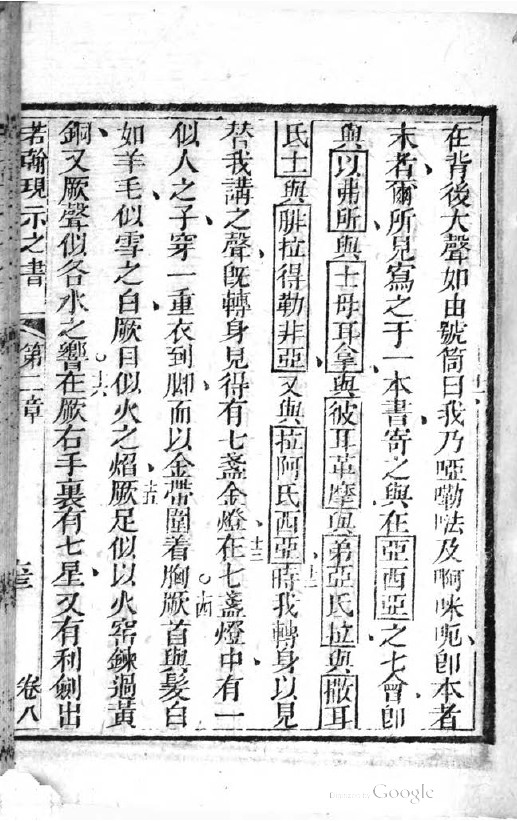 在背後大聲如由號筒曰我乃啞嘞𠵽及啊咪呃卽本者
十一
末者爾所見寫之于一本書寄之與在亞西亞之七會卽
與以弗所與士每耳拿與彼耳革摩與弟亞氏拉與撒耳
氏士與腓拉得勒非亞又與拉阿氏西亞時我轉身以見
十二
替我講之聲旣轉身見得有七盞金燈在七盞燈中有一
十三
似人之子穿一重衣到脚而以金帶圍着胸厥首與髮白
十四
如羊毛似雪之白厥目似火之熖厥足似以火窰鍊過黃
十五
銅又厥聲似各水之響在厥右手裏有七星又有利劍出
十六
若翰現示之書 第一章 卷八
Digitized by Google